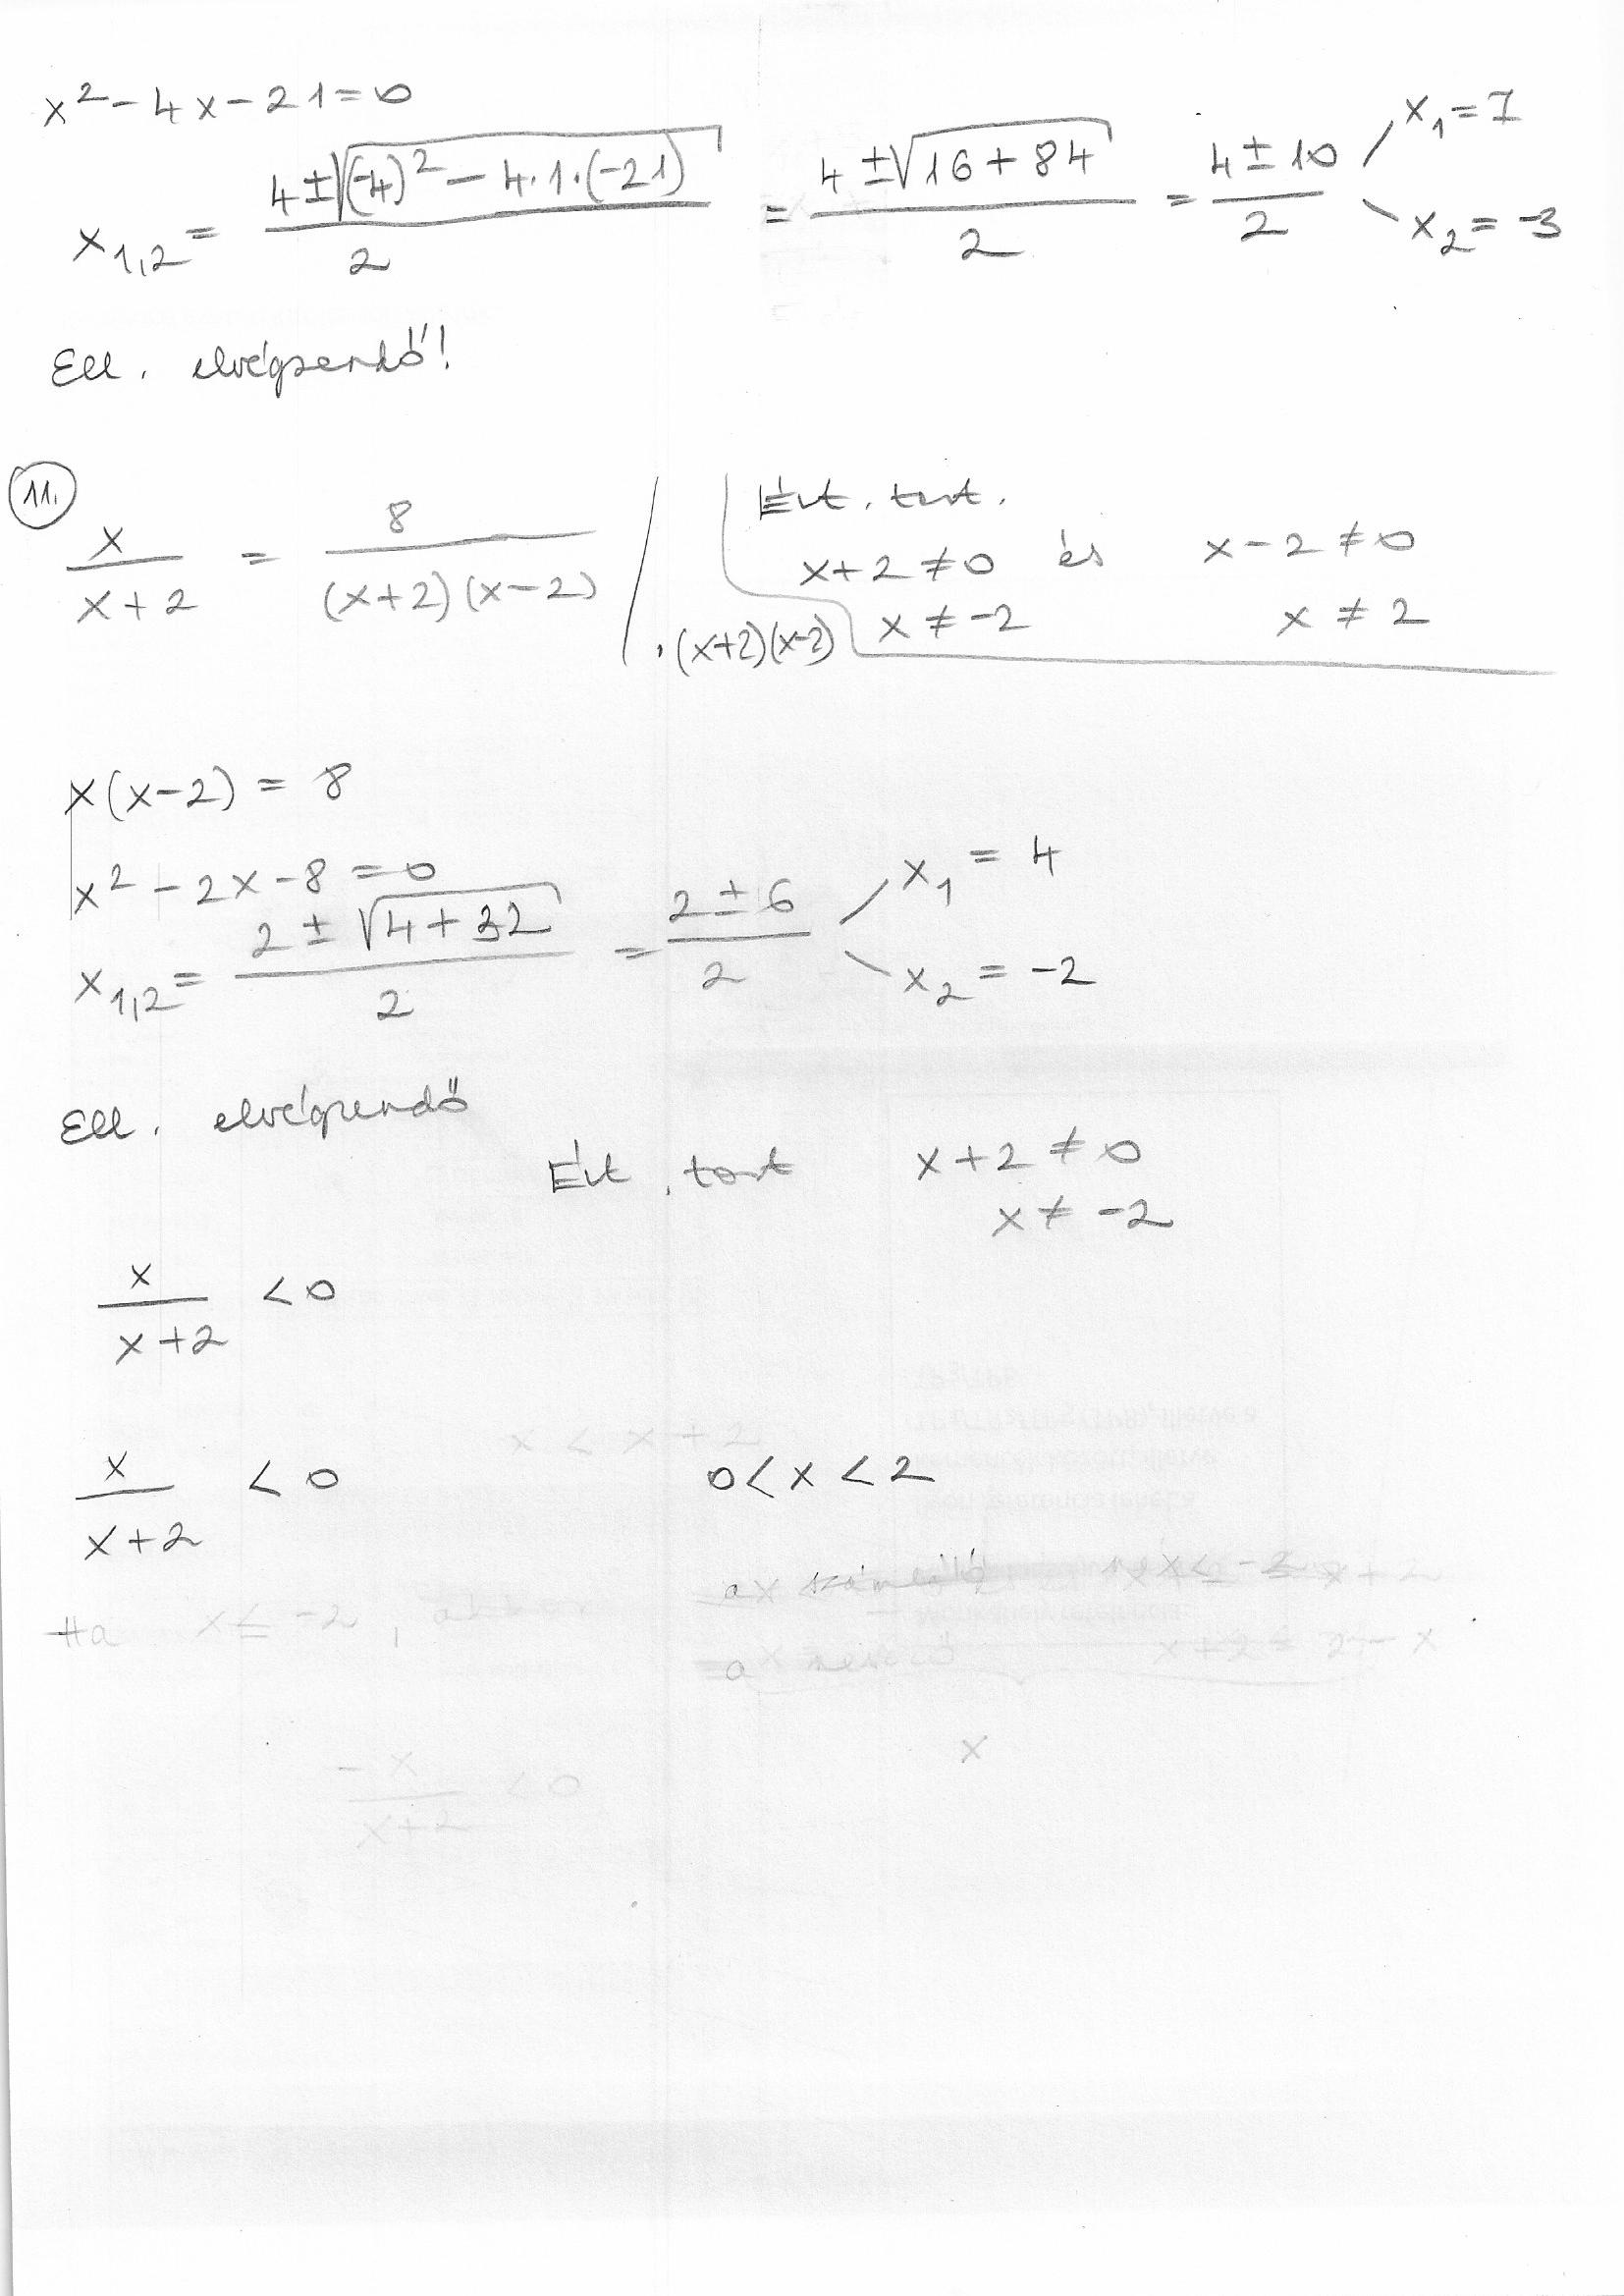 x² - 4x - 21 = 0
x₁,₂ = (4 ± √((-4)² - 4·1·(-21))) / 2 = (4 ± √(16 + 84)) / 2 = (4 ± 10) / 2 x₁ = 7 x₂ = -3
Ell. elvégzendő!
11.
x / (x + 2) = 8 / ((x+2)(x-2)) / ·(x+2)(x-2)
Ért. tart.
x + 2 ≠ 0 és x - 2 ≠ 0
x ≠ -2 x ≠ 2
x(x-2) = 8
x² - 2x - 8 = 0
x₁,₂ = (2 ± √(4 + 32)) / 2 = (2 ± 6) / 2 x₁ = 4 x₂ = -2
Ell. elvégzendő
Ért. tart x + 2 ≠ 0
x ≠ -2
x / (x + 2) < 0
x < x + 2
x / (x + 2) < 0 0 < x < 2
a számláló
Ha x ≤ -2,
a nevező
x
- x / (x + 2) < 0